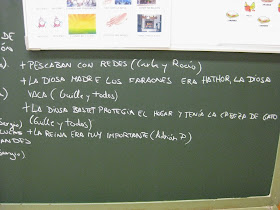 DE
+ PESCABAN CON REDES (Carla y Rocío)
+ LA DIOSA MADRE LOS FARAONES ERA HATHOR, LA DIOSA
VACA (Guille y todos)
+ LA DIOSA BASTET PROTEGIA EL HOGAR Y TENÍA LA CABEZA DE GATO
(Guille y todos)
+ LA REINA ERA MUY IMPORTANTE (Adrián P.)